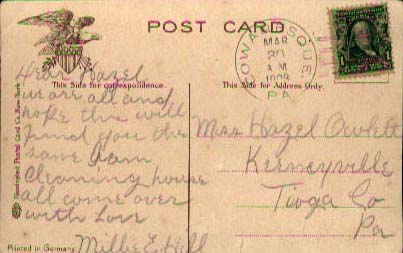 POST CARD
This Side for correspondence.
This Side for Address Only.
COWANESQUE
MAR
20
AM
1909
PA
1
Dear Hazel
we are all and
hope this will
find you the
same I am
cleaning house
all come over
with Love
Millie E Hill
Miss Hazel Owlett
Keeneyville
Tioga Co
Pa
Illustrated Postal Card Co., New York
Printed in Germany